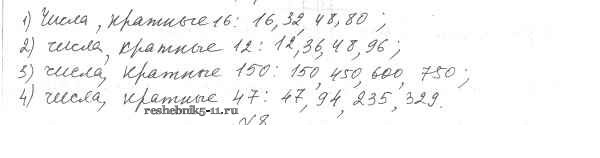 1) Числа, кратные 16: 16, 32, 48, 80;
2) числа, кратные 12: 12, 36, 48, 96;
3) числа, кратные 150: 150, 450, 600, 750;
4) числа, кратные 47: 47, 94, 235, 329.
reshebnik5-11.ru
№8